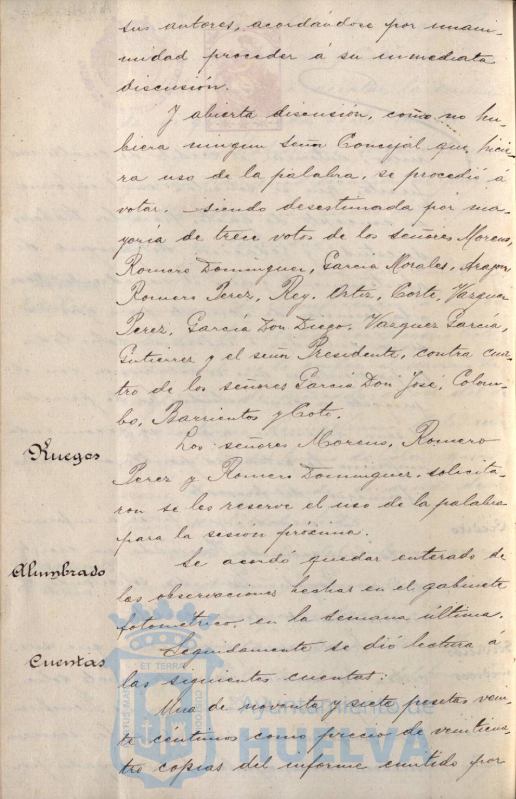 sus autores, acordándose por unani-
midad proceder á su inmediata
discusión.
Y abierta discusión, como no hu-
biera ningun señor Concejal que hicie-
ra uso de la palabra, se procedió á
votar, siendo desestimada por ma-
yoría de trece votos de los señores Moreno,
Romero Dominguez, Garcia Morales, Aragon
Romero Perez, Rey, Ortiz, Corte, Vazquez
Perez, García Don Diego, Vazquez García,
Gutierrez y el señor Presidente, contra cua-
tro de los señores García Don José, Colom-
bo, Barrientos y Coto.
Ruegos
Los señores Moreno, Romero
Perez y Romero Dominguez, solicita-
ron se les reserve el uso de la palabra
para la sesión próxima.
Alumbrado
Se acordó quedar enterado de
las observaciones hechas en el gabinete
fotométrico, en la semana última.
Cuentas
Seguidamente se dió lectura á
las siguientes cuentas:
Una de noventa y siete pesetas vein-
te céntimos como precio de veinticua-
tro copias del informe emitido por
ET TERRA
Ayuntamiento de
HUELVA